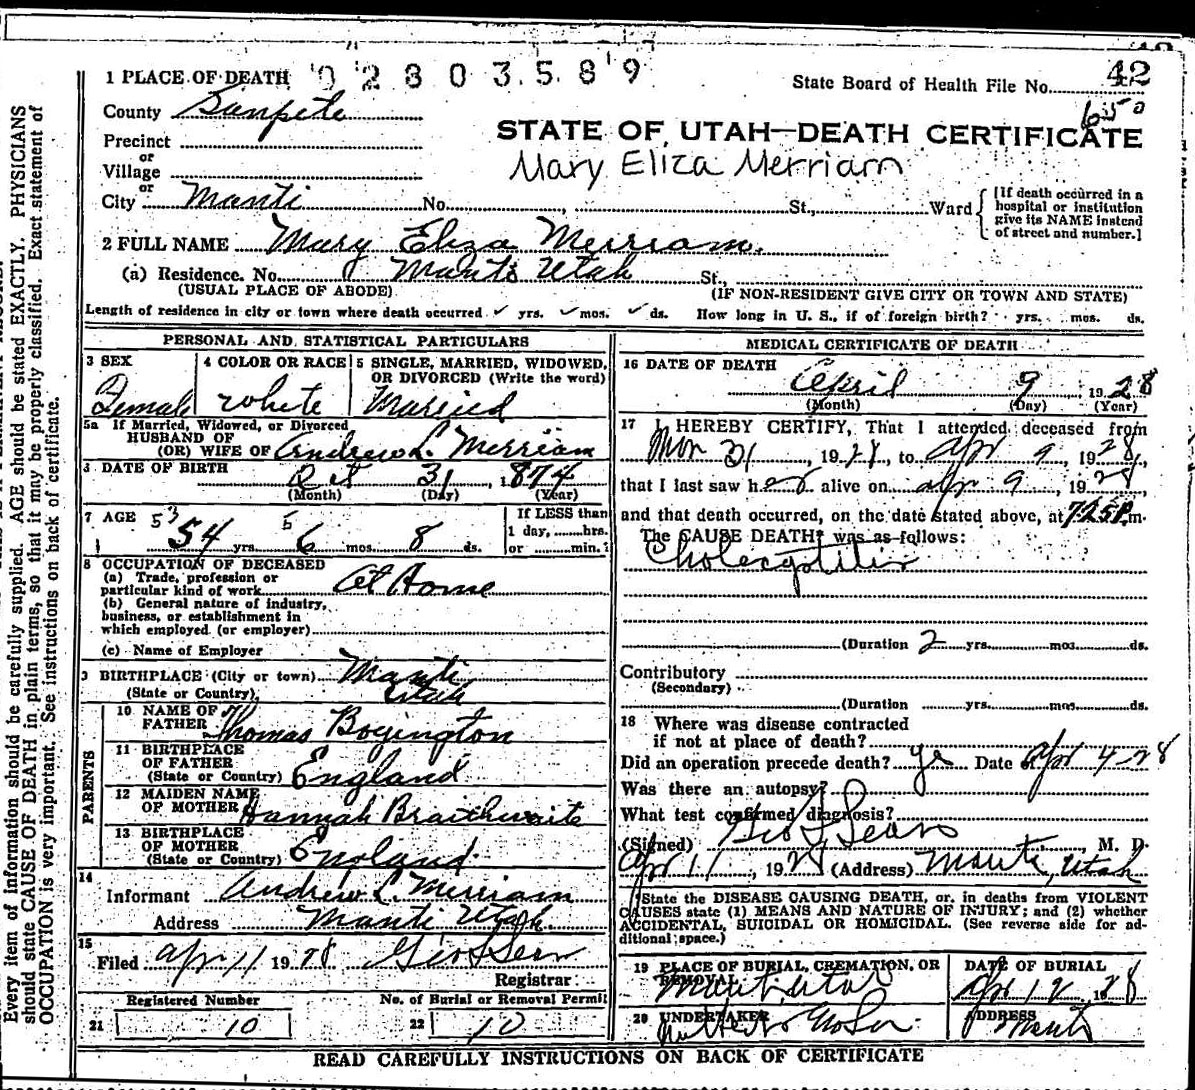 42
1 PLACE OF DEATH 02803589 State Board of Health File No. 42
County Sanpete 650
STATE OF UTAH—DEATH CERTIFICATE
Precinct
or
Village
Mary Eliza Merriam
or
City Manti No. , St., Ward
[If death occurred in a
hospital or institution
give its NAME instead
of street and number.]
2 FULL NAME Mary Eliza Merriam.
(a) Residence. No. Manti Utah St.,
(USUAL PLACE OF ABODE) (IF NON-RESIDENT GIVE CITY OR TOWN AND STATE)
Length of residence in city or town where death occurred ✓ yrs. ✓ mos. ✓ ds. How long in U. S., if of foreign birth? yrs. mos. ds.
PERSONAL AND STATISTICAL PARTICULARS
3 SEX 4 COLOR OR RACE 5 SINGLE, MARRIED, WIDOWED,
OR DIVORCED (Write the word)
Female white Married
5a If Married, Widowed, or Divorced
HUSBAND OF
(OR) WIFE OF Andrew L. Merriam
6 DATE OF BIRTH Oct 31, 1874
(Month) (Day) (Year)
7 AGE 53 5 If LESS than
1 day, hrs.
54 yrs. 6 mos. 8 ds. or min.?
8 OCCUPATION OF DECEASED
(a) Trade, profession or
particular kind of work At Home
(b) General nature of industry,
business, or establishment in
which employed (or employer)
(c) Name of Employer
9 BIRTHPLACE (City or town) Manti
(State or Country) Utah
PARENTS
10 NAME OF
FATHER Thomas Boyington
11 BIRTHPLACE
OF FATHER
(State or Country) England
12 MAIDEN NAME
OF MOTHER Hannah Braithwaite
13 BIRTHPLACE
OF MOTHER
(State or Country) England.
14
Informant Andrew L. Merriam
Address Manti Utah.
15
Filed Apr 11 1928 Geo L Sears
Registrar
Registered Number No. of Burial or Removal Permit
21 10 22 10
MEDICAL CERTIFICATE OF DEATH
16 DATE OF DEATH
April 9 1928
(Month) (Day) (Year)
17 I HEREBY CERTIFY, That I attended deceased from
Mar 31, 1928, to Apr 9, 1928,
that I last saw her alive on Apr 9, 1928,
and that death occurred, on the date stated above, at 7.25 P.m.
The CAUSE DEATH* was as follows:
Cholecystitis
(Duration 2 yrs. mos. ds.
Contributory
(Secondary)
(Duration yrs. mos. ds.
18 Where was disease contracted
if not at place of death?
Did an operation precede death? yes Date of Apr 4-28
Was there an autopsy?
What test confirmed diagnosis?
(Signed) Geo L Sears, M. D.
Apr 11, 1928 (Address) Manti, Utah
*State the DISEASE CAUSING DEATH, or, in deaths from VIOLENT
CAUSES state (1) MEANS AND NATURE OF INJURY; and (2) whether
ACCIDENTAL, SUICIDAL OR HOMICIDAL. (See reverse side for ad-
ditional space.)
19 PLACE OF BURIAL, CREMATION, OR REMOVAL DATE OF BURIAL
Manti Utah Apr 12 1928
20 UNDERTAKER ADDRESS
Manti
READ CAREFULLY INSTRUCTIONS ON BACK OF CERTIFICATE
Every item of information should be carefully supplied. AGE should be stated EXACTLY. PHYSICIANS
should state CAUSE OF DEATH in plain terms, so that it may be properly classified. Exact statement of
OCCUPATION is very important. See instructions on back of certificate.